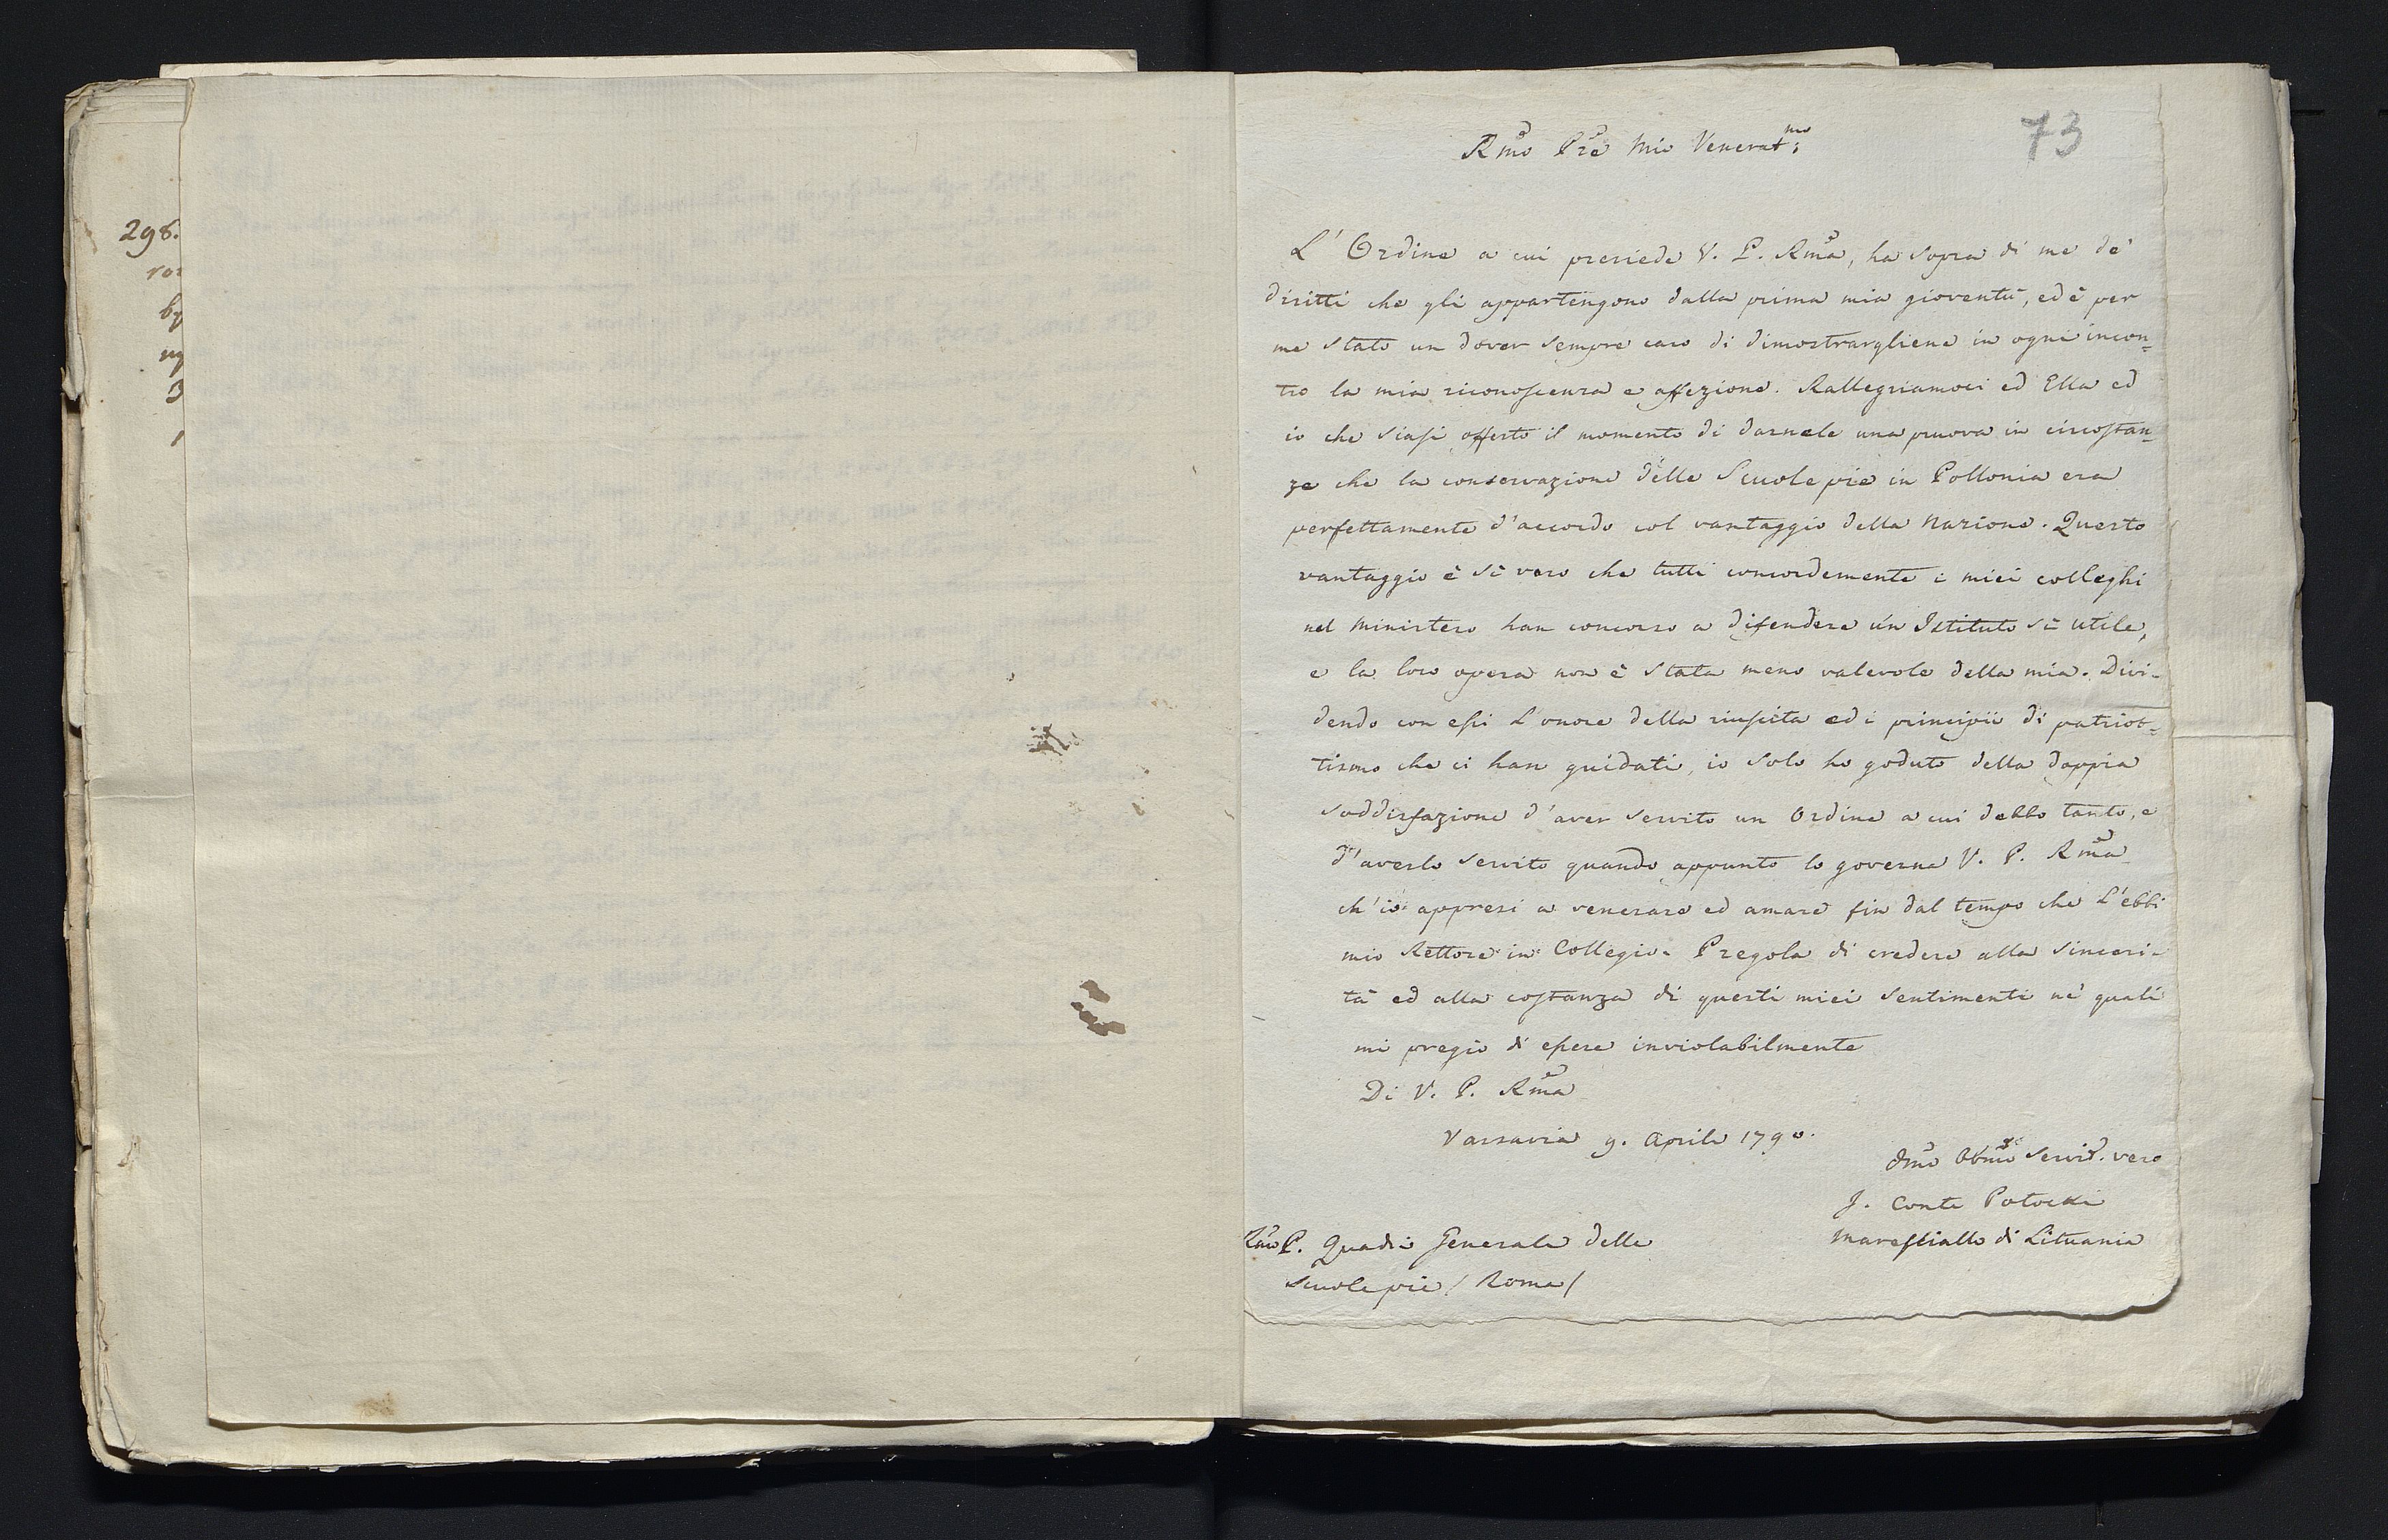 298.
ro
by
ny
3
1
73
Rmo Pre Mio Venerat:mo
L'Ordine a cui presiede V. P. Rma, ha sopra di me de'
diritti che gli appartengono dalla prima mia gioventù, ed è per
me stato un dover sempre caro di dimostrargliene in ogni incon=
tro la mia riconoscenza e affezione. Rallegriamoci ed Ella ed
io che siasi offerto il momento di darnele una pruova in circostan=
ze che la conservazione delle Scuole pie in Pollonia era
perfettamente d'accordo col vantaggio della Nazione. Questo
vantaggio è sì vero che tutti concordemente i miei colleghi
nel Ministero han concorso a difendere un Istituto sì utile,
e la loro opera non è stata meno valevole della mia. Divi-
dendo con essi l'onore della riuscita ed i principii di patriot=
tismo che ci han guidati, io solo ho goduto della doppia
soddisfazione d'aver servito un Ordine a cui debbo tanto, e
d'averlo servito quando appunto lo governa V. P. Rma
ch'io appresi a venerare ed amare fin dal tempo che l'ebbi
mio Rettore in Collegio. Pregola di credere alla sinceri-
tà ed alla costanza di questi miei sentimenti ne' quali
mi pregio di essere inviolabilmente
Di V. P. Rma
Varsavia 9. Aprile 1790.
Dmo Obmo Servid. vero
J. Conte Potocki
Maresciallo di Lituania
Rmo P. Quadri Generale delle
Scuole pie / Roma /